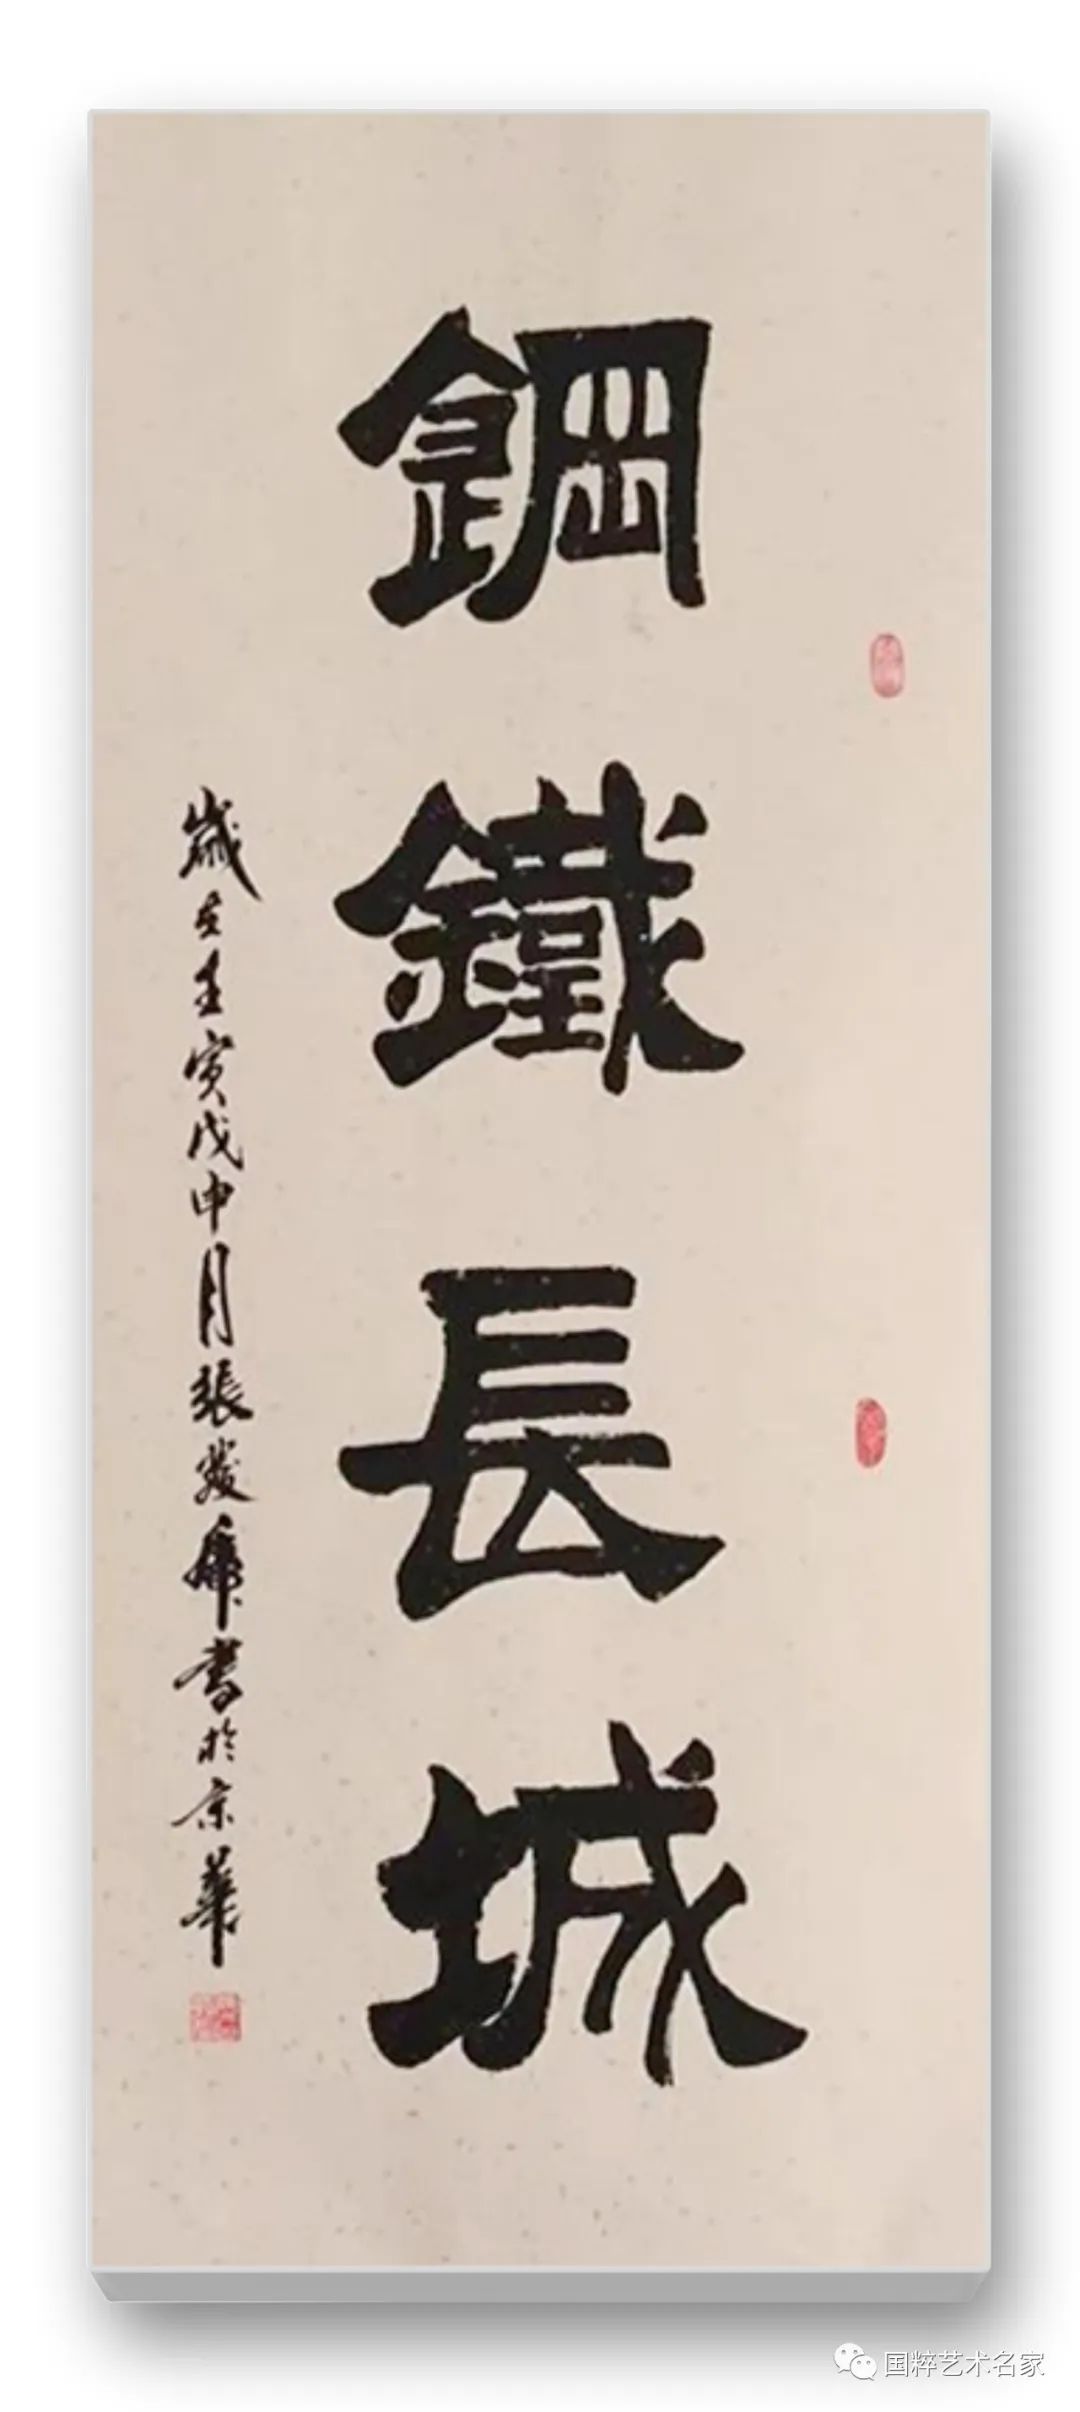 鋼鐵長城
歲在壬寅戊申月張發書於京華
国粹艺术名家